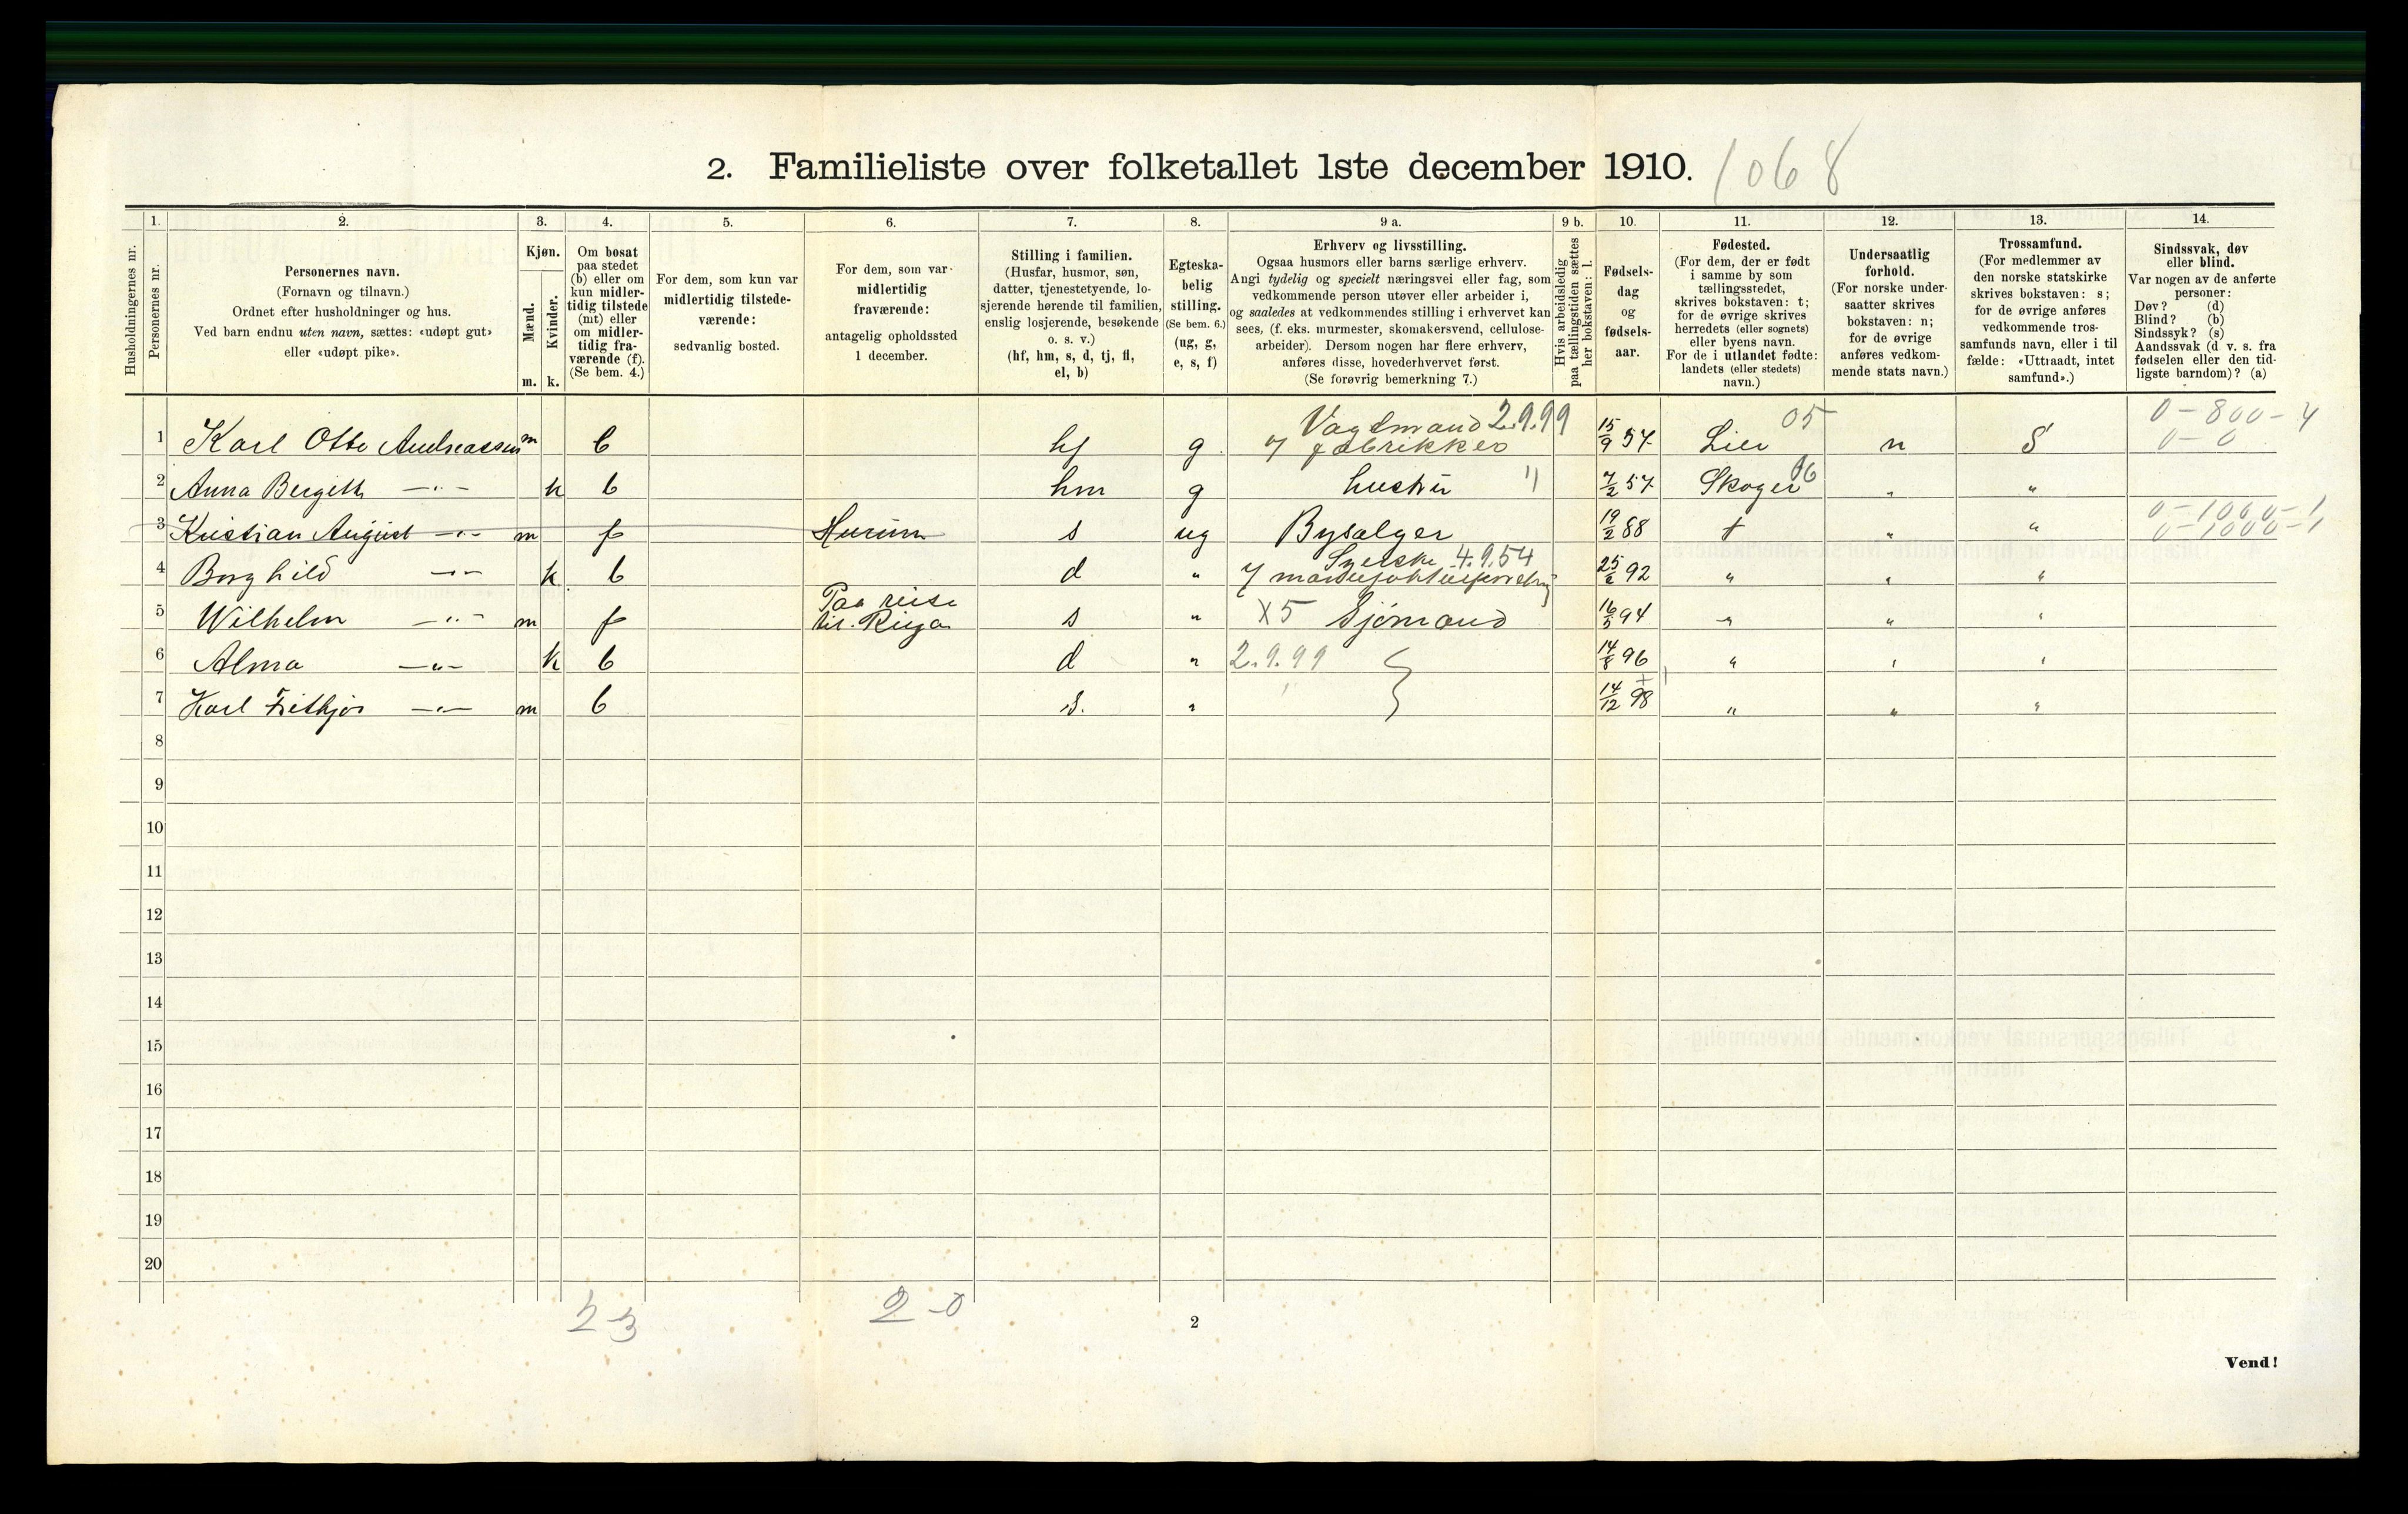 2. Familieliste over folketallet 1ste december 1910. 1068
Husholdningernes nr.
1.
Personernes nr.
2.
Personernes navn.
(Fornavn og tilnavn.)
Ordnet efter husholdninger og hus.
Ved barn endnu uten navn, sættes: «udøpt gut»
eller «udøpt pike».
3.
Kjøn.
Mænd.
Kvinder.
m. k.
4.
Om bosat
paa stedet
(b) eller om
kun midler-
tidig tilstede
(mt) eller
om midler-
tidig fra-
værende (f).
(Se bem. 4.)
5.
For dem, som kun var
midlertidig tilstede-
værende:
sedvanlig bosted.
6.
For dem, som var
midlertidig
fraværende:
antagelig opholdssted
1 december.
7.
Stilling i familien.
(Husfar, husmor, søn,
datter, tjenestetyende, lo-
sjerende hørende til familien,
enslig losjerende, besøkende
o. s. v.)
(hf, hm, s, d, tj, fl,
el, b)
8.
Egteska-
belig
stilling.
(Se bem. 6.)
(ug, g,
e, s, f)
9 a.
Erhverv og livsstilling.
Ogsaa husmors eller barns særlige erhverv.
Angi tydelig og specielt næringsvei eller fag, som
vedkommende person utøver eller arbeider i,
og saaledes at vedkommendes stilling i erhvervet kan
sees, (f. eks. murmester, skomakersvend, cellulose-
arbeider). Dersom nogen har flere erhverv,
anføres disse, hovederhvervet først.
(Se forøvrig bemerkning 7.)
9 b.
Hvis arbeidsledig
paa tællingstiden sættes
her bokstaven: l.
10.
Fødsels-
dag
og
fødsels-
aar.
11.
Fødested.
(For dem, der er født
i samme by som
tællingsstedet,
skrives bokstaven: t;
for de øvrige skrives
herredets (eller sognets)
eller byens navn.
For de i utlandet fødte:
landets (eller stedets)
navn.)
12.
Undersaatlig
forhold.
(For norske under-
saatter skrives
bokstaven: n;
for de øvrige
anføres vedkom-
mende stats navn.)
13.
Trossamfund.
(For medlemmer av
den norske statskirke
skrives bokstaven: s;
for de øvrige anføres
vedkommende tros-
samfunds navn, eller i til
fælde: «Uttraadt, intet
samfund».)
14.
Sindssvak, døv
eller blind.
Var nogen av de anførte
personer:
Døv? (d)
Blind? (b)
Sindssyk? (s)
Aandssvak (d v. s. fra
fødselen eller den tid-
ligste barndom)? (a)
Vagtmand 2.9.99 05 0-800-4
1 Karl Otto Andreassen m b hf g y fabrikker 15/9 57 Lier n S 0-0
2 Anna Bergith —"— k b hm g hustru 7/2 57 Skoger "  "
0-1000-1
3 Kristian August —"— m f Hurum s ug Bysælger 19/2 88 t " " 0-1000-1
4 Borghild —"— k b d " 4.9.54 25/2 92 " " "
Paa reise
5 Wilhelm —"— m f til Riga s " X5 Sjömand 16/5 94 " " "
6 Alma —"— k b d " 2.9.99 14/8 96 " " "
7 Karl Frithjof —"— m b s. " 14/12 98 " " "
8
9
10
11
12
13
14
15
16
17
18
19
20
2-3 2-0
2
Vend!